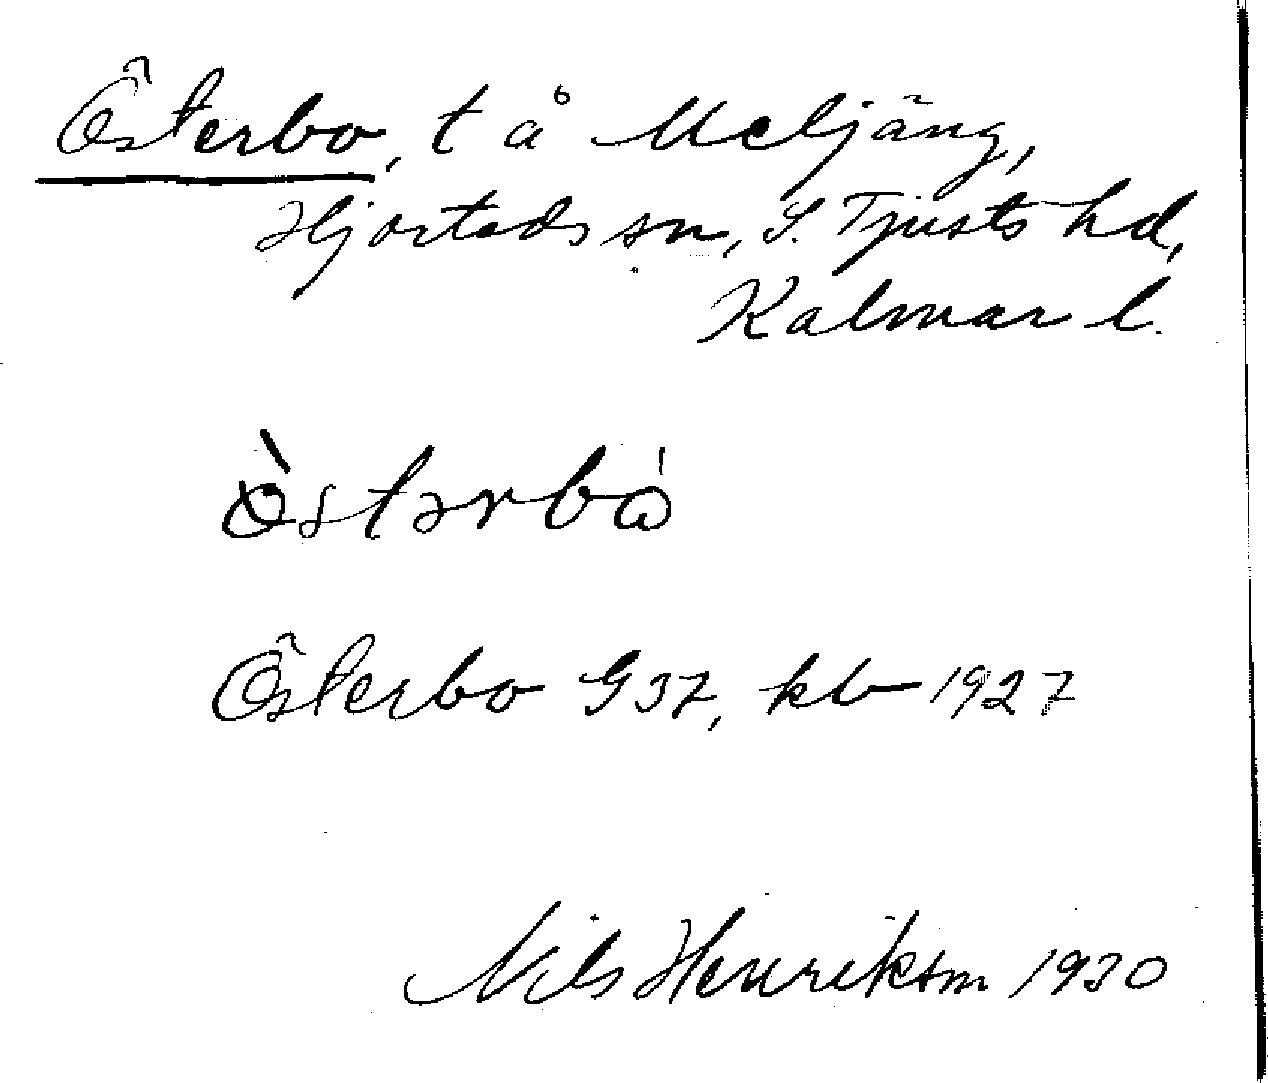 Österbo, t å Meljäng,
Hjorteds sn, S. Tjusts hd,
Kalmar l.
ὸ̈stərbὼ
Österbo G37, kb 1927
Nils Henriksm 1930